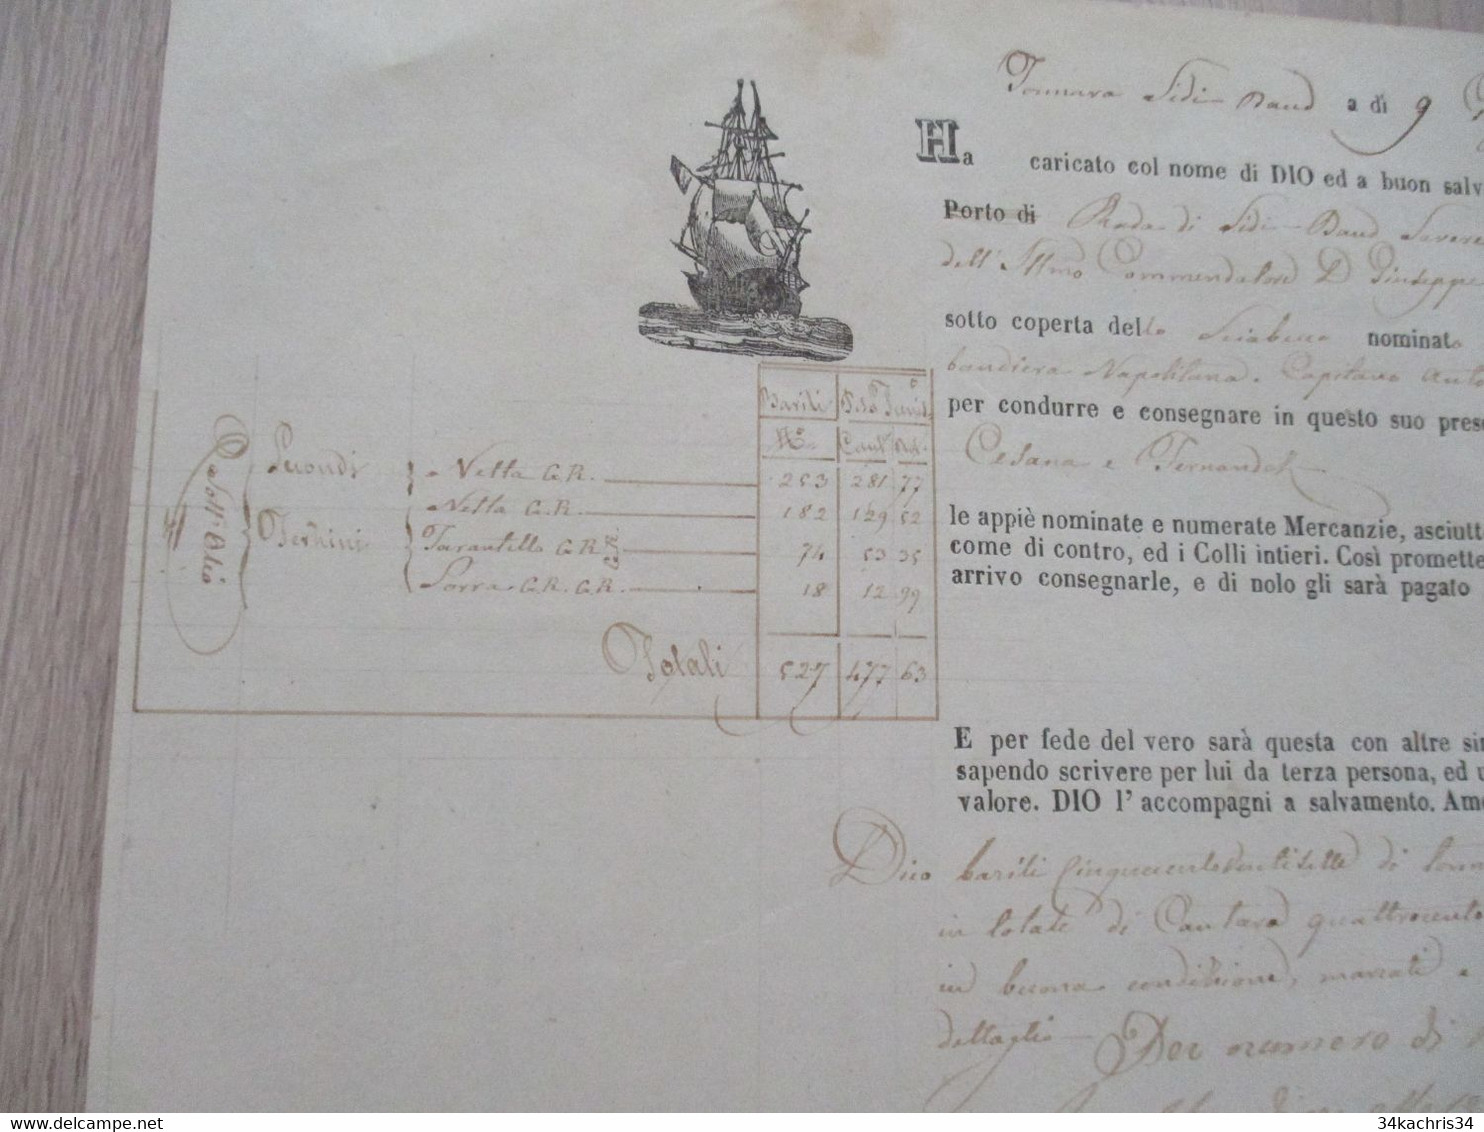 Tonnara Sidi-Daud a di 9
Ha caricato col nome di DIO ed a buon salv
Porto di Rada di Sidi-Daud
dell' Illmo Commendatore D Giuseppe
sotto coperta dello Sciabecco nominato
bandiera Napolitana. Capitano Anto
per condurre e consegnare in questo suo pres
Cesana e
le appiè nominate e numerate Mercanzie, asciutt
come di contro, ed i Colli intieri. Così promette
arrivo consegnarle, e di nolo gli sarà pagato
Barili Peso Tunis
No Cant Rot.
Sott' Olio
Secondi Netta G.R. 253 281 77
Netta G.R. 182 129 52
Terzini Tarantello G.R. G.R. 74 53 35
Sorra G.R. G.R. 18 12 99
Totali 527 477 63
E per fede del vero sarà questa con altre sin
sapendo scrivere per lui da terza persona, ed u
valore. DIO l' accompagni a salvamento. Ame
Dico barili Cinquecentoventisette di tonn
in totale di Cantara quattrocento
in buona condizione, marcati e
dettaglio Dei numero di
34kachris34
34kachris34
delcampe.net